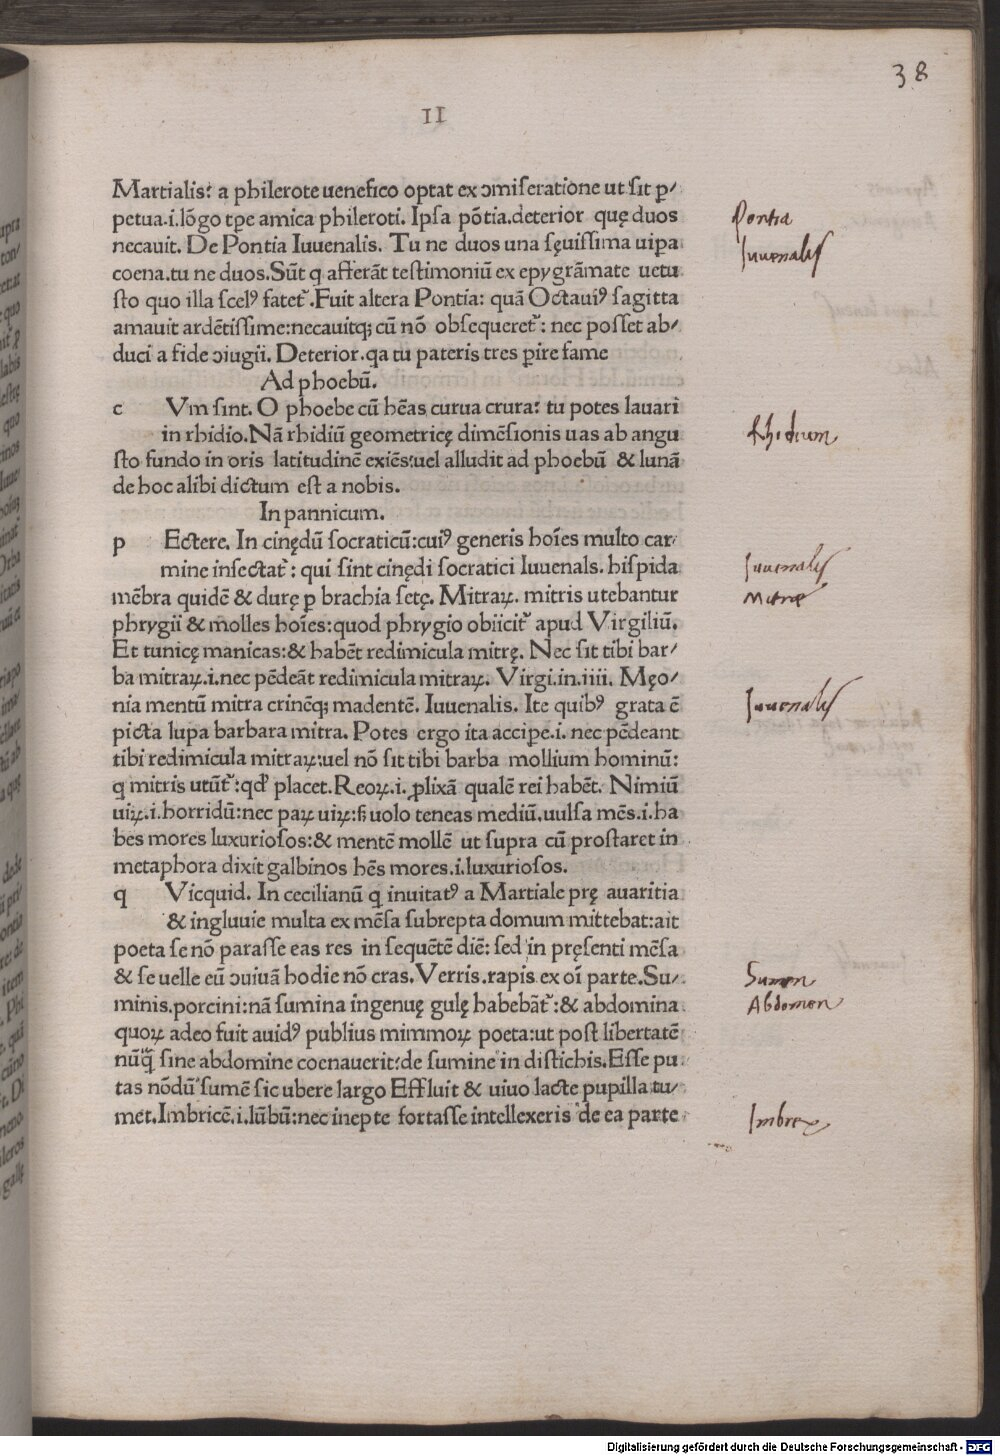 38
II
Martialis: a philerote uenefico optat ex ↄmiseratione ut sit ꝑ-
petua.i.lõgo tp̃e amica phileroti. Ipsa põtia.deterior quę duos
necauit. De Pontia Iuuenalis. Tu ne duos una sęuissima uiꝑa
coena.tu ne duos.Sũt q afferãt testimoniũ ex epygrãmate uetu
sto quo illa scelꝰ fatet᷑.Fuit altera Pontia: quã Octauiꝰ sagitta
amauit ardẽtissime:necauitq; cũ nõ obsequeret᷑: nec posset ab-
duci a fide ↄiugii. Deterior.qa tu pateris tres ꝑire fame
Ad phoebũ.
c Vm sint. O phoebe cũ hẽas curua crura: tu potes lauari
in rhidio.Nã rhidiũ geometricę dimẽsionis uas ab angu
sto fundo in oris latitudinẽ exiẽs:uel alludit ad phoebũ & lunã
de hoc alibi dictum est a nobis.
In pannicum.
p Ectere. In cinędũ socraticũ:cuiꝰ generis hoĩes multo car-
mine insectat᷑: qui sint cinędi socratici Iuuenals. hispida
mẽbra quidẽ & durę ꝑ brachia setę. Mitraꝝ. mitris utebantur
phrygii & molles hoĩes:quod phrygio obiicit᷑ apud Virgiliũ.
Et tunicę manicas:& habẽt redimicula mitrę. Nec sit tibi bar-
ba mitraꝝ.i.nec pẽdeãt redimicula mitraꝝ. Virgi.in.iiii. Męo-
nia mentũ mitra crinẽq; madentẽ. Iuuenalis. Ite quibꝰ grata ẽ
picta lupa barbara mitra. Potes ergo ita acciꝑe.i. nec pẽdeant
tibi redimicula mitraꝝ:uel nõ sit tibi barba mollium hominũ:
q mitris utũt᷑:qd̃ placet.Reoꝝ.i. ꝓlixã qualẽ rei habẽt. Nimiũ
uiꝝ.i.horridũ:nec paꝝ uiꝝ:ß uolo teneas mediũ.uulsa mẽs.i.ha
bes mores luxuriosos:& mentẽ mollẽ ut supra cũ prostaret in
metaphora dixit galbinos hẽs mores.i.luxuriosos.
q Vicquid. In cecilianũ q inuitatꝰ a Martiale prę auaritia
& ingluuie multa ex mẽsa subrepta domum mittebat:ait
poeta se nõ parasse eas res in sequẽtẽ diẽ: sed in pręsenti mẽsa
& se uelle eũ ↄuiuã hodie nõ cras.Verris.rapis ex oĩ parte.Su-
minis.porcini:nã sumina ingenuę gulę habebãt᷑:& abdomina
quoꝝ adeo fuit auidꝰ publius mimmoꝝ poeta:ut post libertatẽ
nũq̃ sine abdomine coenauerit:de sumine in distichis.Esse pu
tas nõdũ sumẽ sic ubere largo Effluit & uiuo lacte pupilla tu-
met.Imbricẽ.i.lũbũ:nec inepte fortasse intellexeris de ea parte
Pontia
Iuuenalis
Rhidium
Iuuenalis
Mitrae
Iuuenalis
Sumen
Abdomen
Imbrex
Digitalisierung gefördert durch die Deutsche Forschungsgemeinschaft - DFG